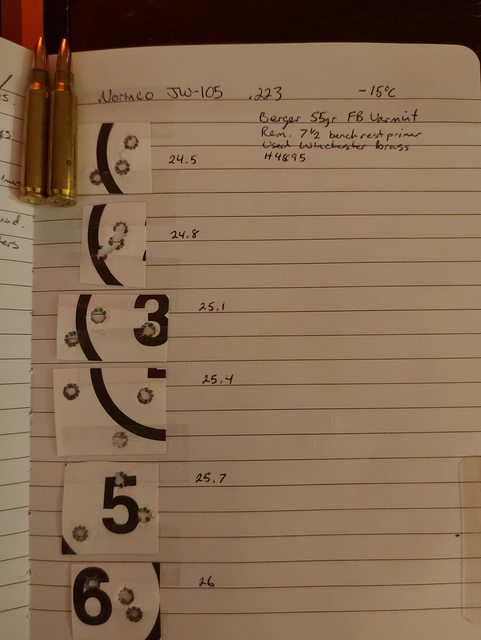 Norinco JW-105 .223 -15°C
Berger 55gr FB Varmint
Rem. 7 1/2 benchrest primer
Used Winchester brass
H4895
24.5
24.8
25.1
3
25.4
25.7
5
26
6